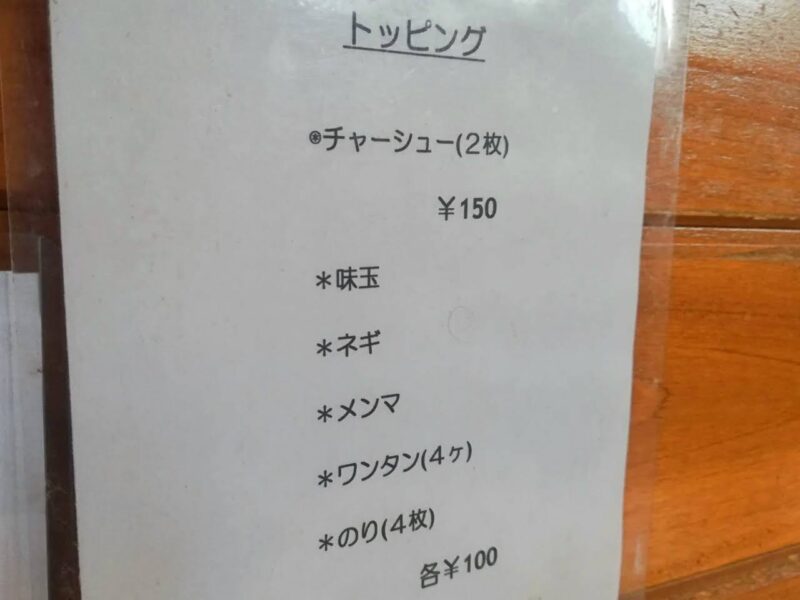 トッピング
⊛チャーシュー(2枚)
￥150
＊味玉
＊ネギ
＊メンマ
＊ワンタン(4ヶ)
＊のり(4枚)
各￥100